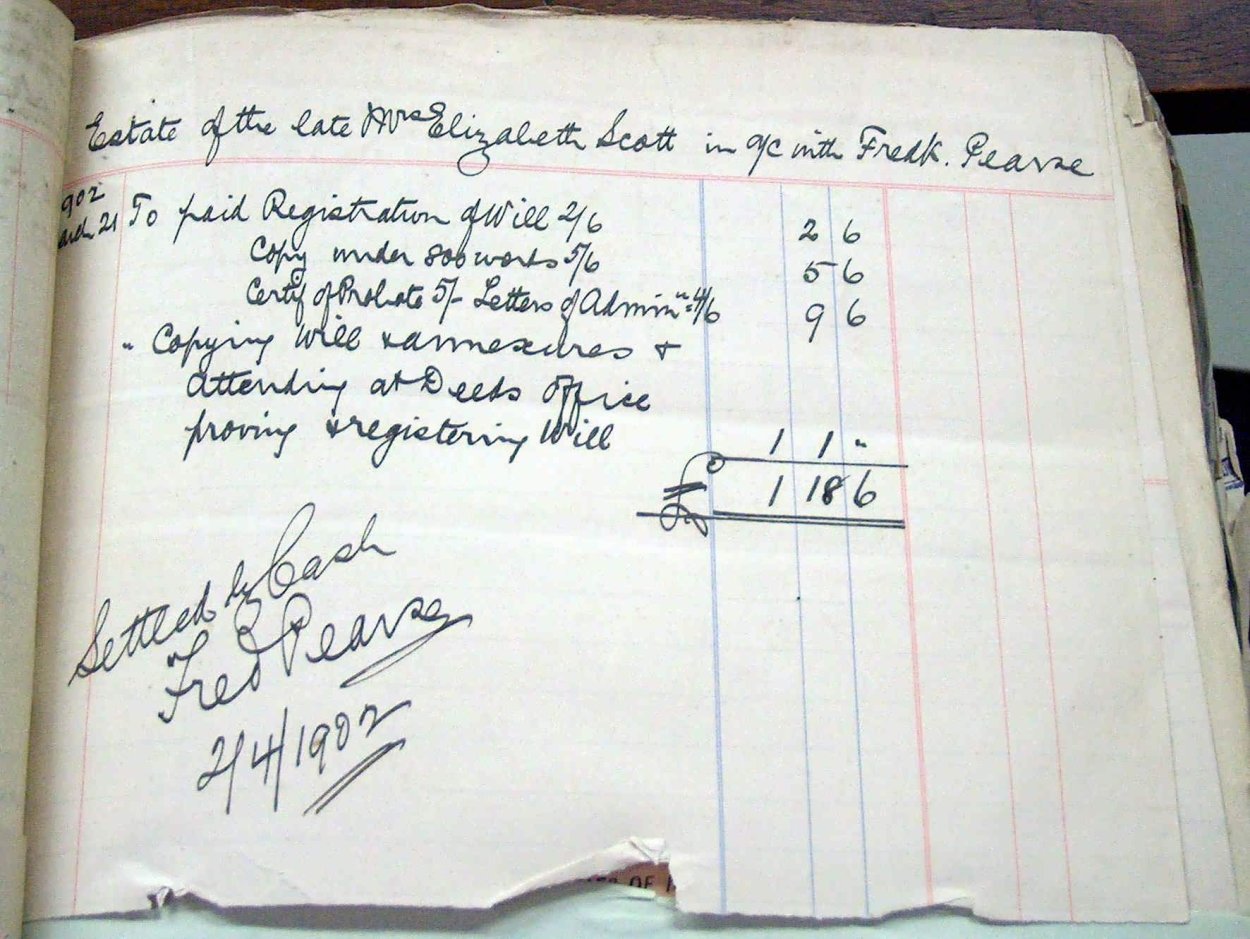 Estate of the late Mrs Elizabeth Scott in a/c with Fredk. Pearse
902
arch 21 To paid Registration of Will 2/6 2 6
Copy under 800 words 5/6 5 6
Certif of Probate 5/- Letters of Adminn 4/6 9 6
" Copying Will & annexures &
attending at Deeds Office
proving & registering Will 1 1 "
£ 1 18 6
Settled by Cash
Fred Pearse
2/4/1902
OF